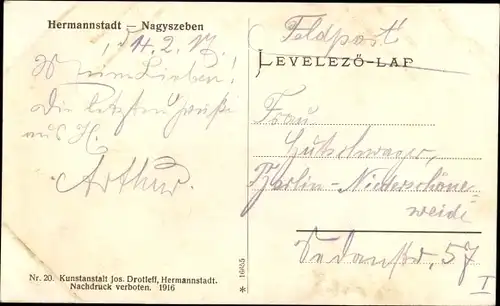 Hermannstadt — Nagyszeben
14. 2. 17.
Meine Lieben!
Die letzten Grüße
aus H.
Arthur.
Nr. 20. Kunstanstalt Jos. Drotleff, Hermannstadt.
Nachdruck verboten. 1916
* 16655
Feldpost
LEVELEZŐ-LAP
Frau
Gutschwager,
Berlin-Niederschöne-
weide
Sedanstr. 57
I